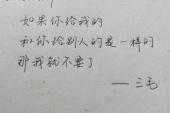 如果你给我的
和你给别人的是一样的
那我就不要了
——三毛